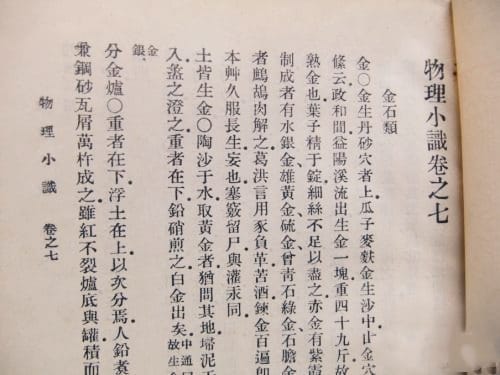 物理小識卷之七
金石類
金〇金生丹砂穴者上瓜子麥麩金生沙中止金穴
條云政和間益陽溪流出生金一塊重四十九斤故
熟金也葉子精于錠細絲不足以盡之赤金有紫霞
制成者有水銀金雄黃金硫金曾青石綠金石膽金
者鷓鴣肉解之葛洪言用家負革苦酒鍊金百遍
本艸久服長生妄也塞竅留尸與灌汞同
土皆生金〇陶沙于水取黃金者猶問其地埽泥
入盞之澄之重者在下鉛硝煎之白金出矣中通
故生金
金銀
分金爐〇重者在下浮土在上以次分焉人鉛煮
鋼砂瓦屑萬杵成之雖紅不裂爐底與罐積而
物理小識 卷之七